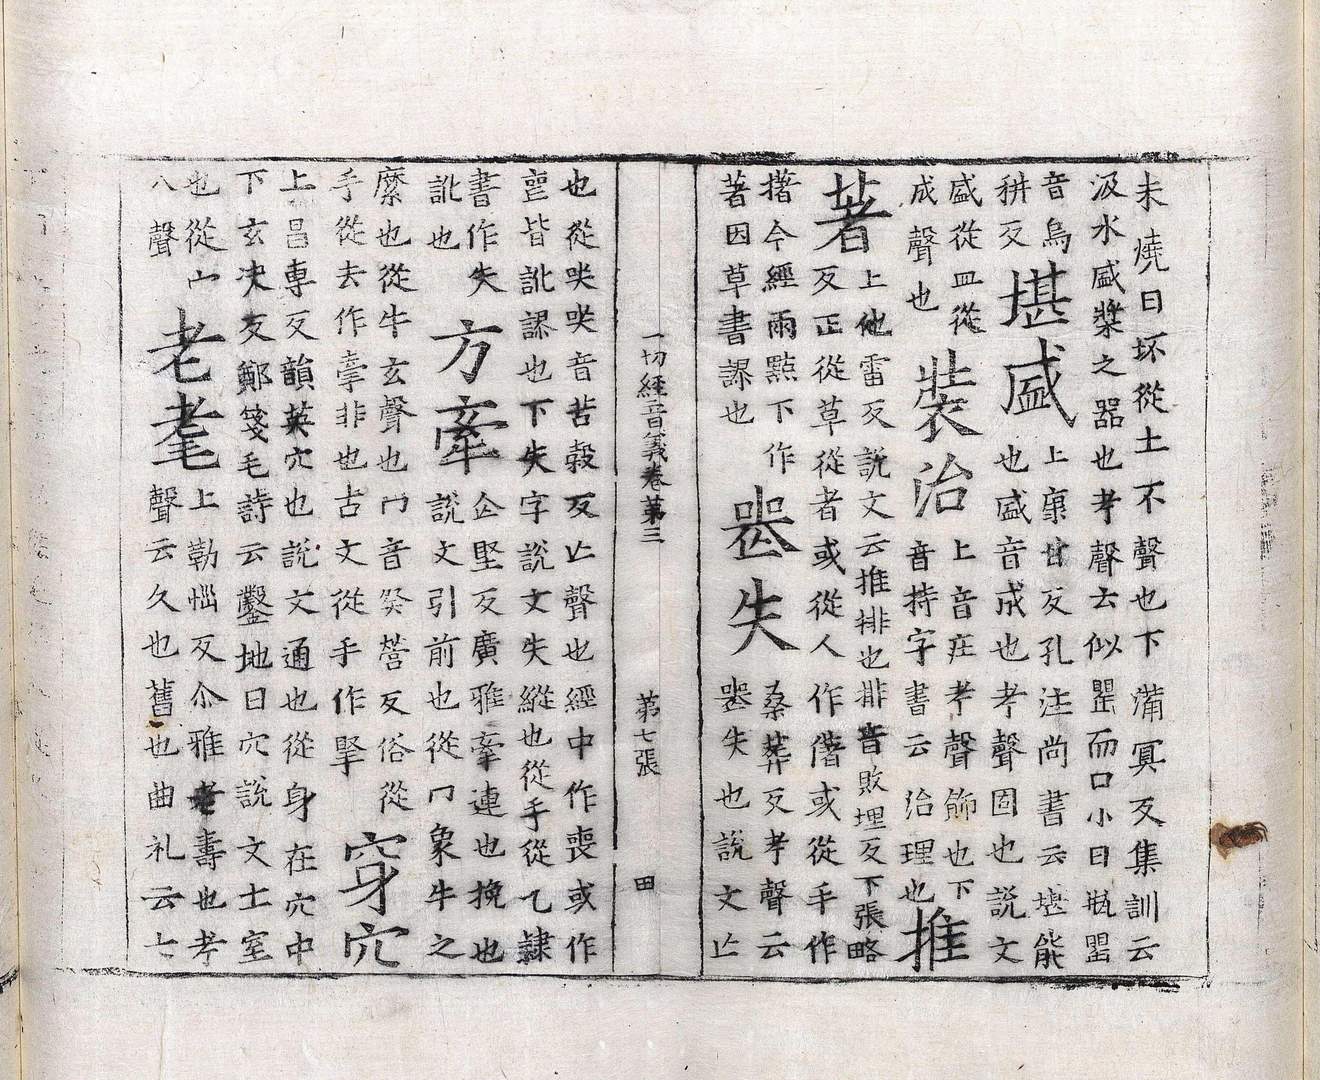 未燒曰坏從土不聲也下蒲冥反集訓云
汲水盛漿之器也考聲云似罌而口小曰瓶罌
音烏
耕反
堪盛
上康甘反孔注尚書云堪能
也盛音成也考聲固也說文
盛從皿從
成聲也
裝治
上音庄考聲飾也下
音持字書云治理也
推
著
上他雷反說文云推排也排音敗埋反下張略
反正從草從者或從人作偖或從手作
撦今經雨點下作
著因草書謬也
喪失
桑葬反考聲云
喪失也說文亾
也從哭哭音苦穀反亾聲也經中作喪或作
䘮皆訛謬也下失字說文失縱也從手從乙隷
書作失
訛也
方牽
企堅反廣雅牽連也挽也
說文引前也從冂象牛之
縻也從牛玄聲也冂音癸營反俗從
手從去作㧁非也古文從手作掔
穿穴
上昌專反韻英穴也說文通也從身在穴中
下玄決反鄭箋毛詩云鑿地曰穴說文土室
也從宀
八聲
老耄
上勒惱反尒雅老壽也考
聲云久也舊也曲礼云七
一切經音義卷第三
第七張
田